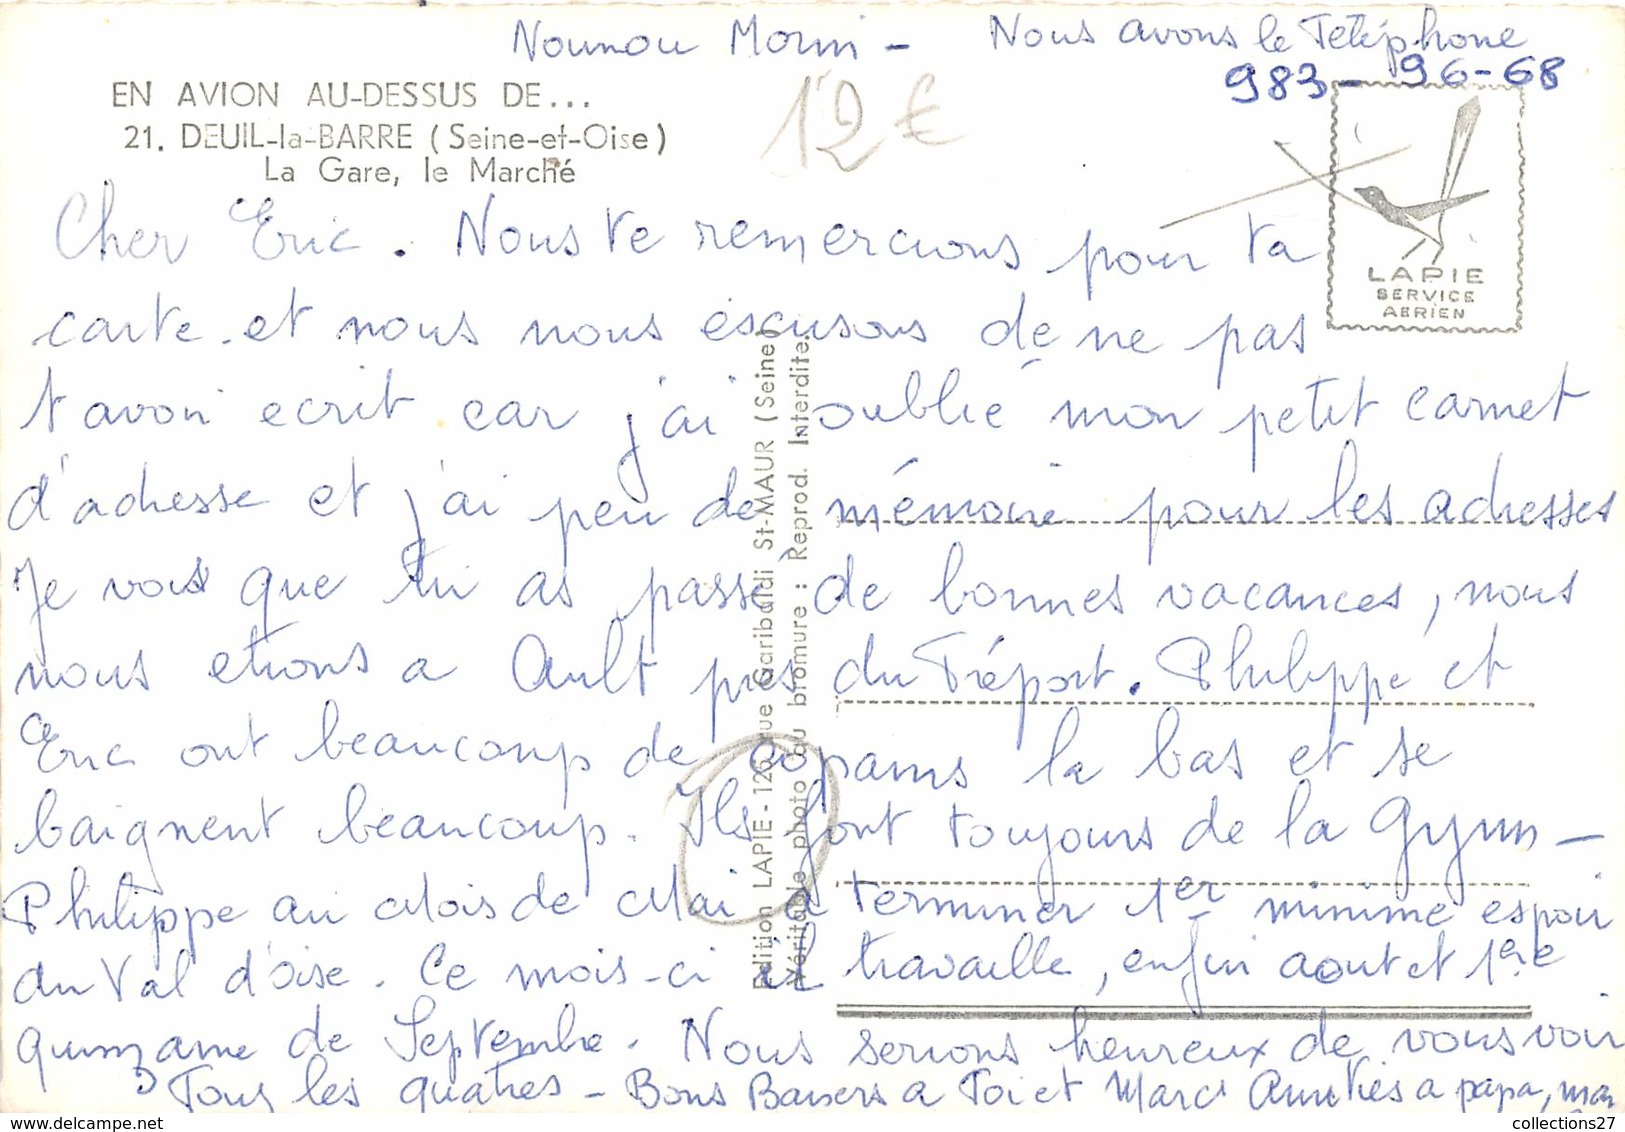 Nounou Morin - Nous avons le Téléphone
983-96-68
EN AVION AU-DESSUS DE...
21. DEUIL-la-BARRE (Seine-et-Oise)
La Gare, le Marché
12 €
LAPIE
SERVICE
AERIEN
Cher Eric. Nous te remercions pour ta
carte et nous nous escusons de ne pas
t'avoir ecrit car j'ai oublié mon petit carnet
d'adresse et j'ai peu de mémoire pour les adresses
Je vois que tu as passé de bonnes vacances, nous
nous etions a Ault près du Tréport. Philippe et
Eric ont beaucoup de copains la bas et se
baignent beaucoup. Ils font toujours de la Gym -
Philippe au Mois de Mai a terminer 1er minime espoir
du Val d'oise. Ce mois-ci il travaille, enfin aout et 1ere
quinzaine de Septembre. Nous serions heureux de vous voir
Tous les quatres - Bons Baisers a Toi et Marc Amitiés a papa, man
Edition LAPIE - 126, rue Garibaldi St-MAUR (Seine)
Véritable photo au bromure : Reprod. Interdite.
collections27